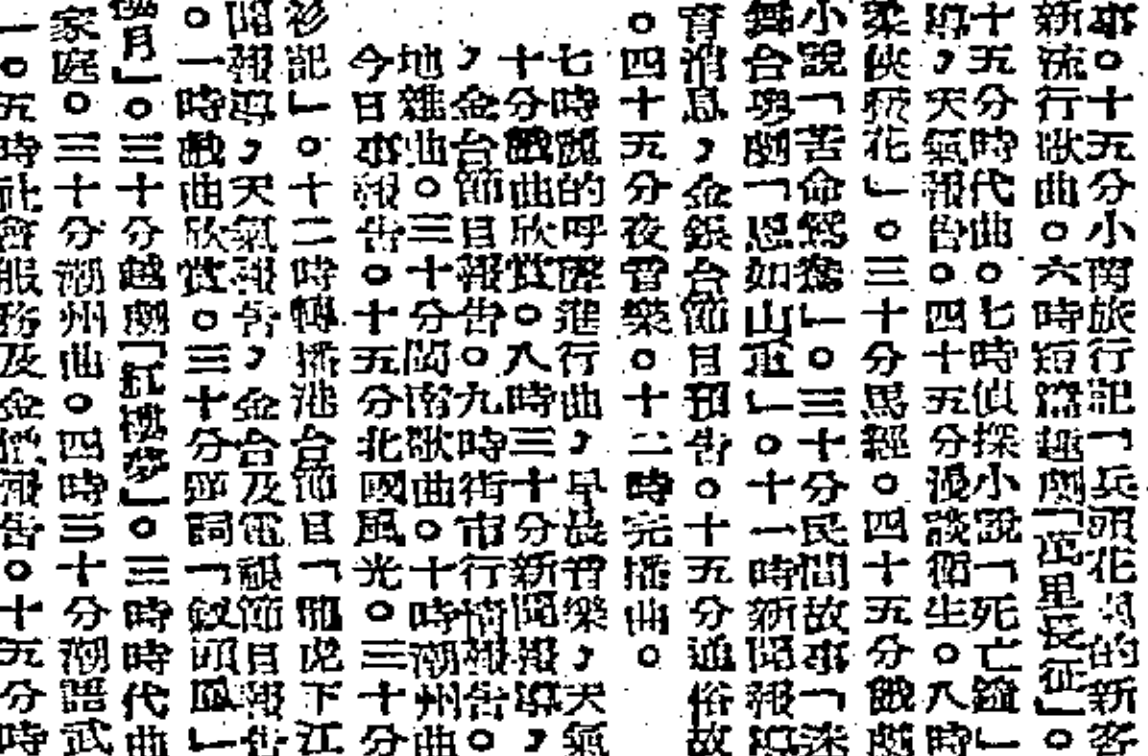 事。十五分小閣旅行記「兵頭花的新客
新流行歌曲。六時短篇趣劇「萬里長征」。
十五分時代曲。七時偵探小說「死亡鐘」
導，天氣報告。四十五分漫談衛生。八時
柔俠孤花」。三十分馬經。四十五分戲劇
小說「苦命鴛鴦」。三十分民間故事「迷
舞台粵劇「恩如山重」。十一時新聞報導
育消息，金銀台節目預告。十五分通俗故
。四十五分夜音樂。十二時完播曲。
七時麗的呼聲進行曲，早晨音樂，天氣
十分戲曲欣賞。八時三十分新聞報導，
，金台節目報告。九時街市行情報告。
地雜曲。三十分閩南歌曲。十時潮州曲。
今日事報告。十五分北國風光。三十分
衫記」。十二時轉播港台節目「龍虎下江
聞報導，天氣報告，金台及電視節目報告
。一時戲曲欣賞。三十分彈詞「釵頭鳳」
月」。三十分越劇「紅樓夢」。三時時代曲
家庭。三十分潮州曲。四時三十分潮語武
一。五時社會服務及金價報告。十五分時